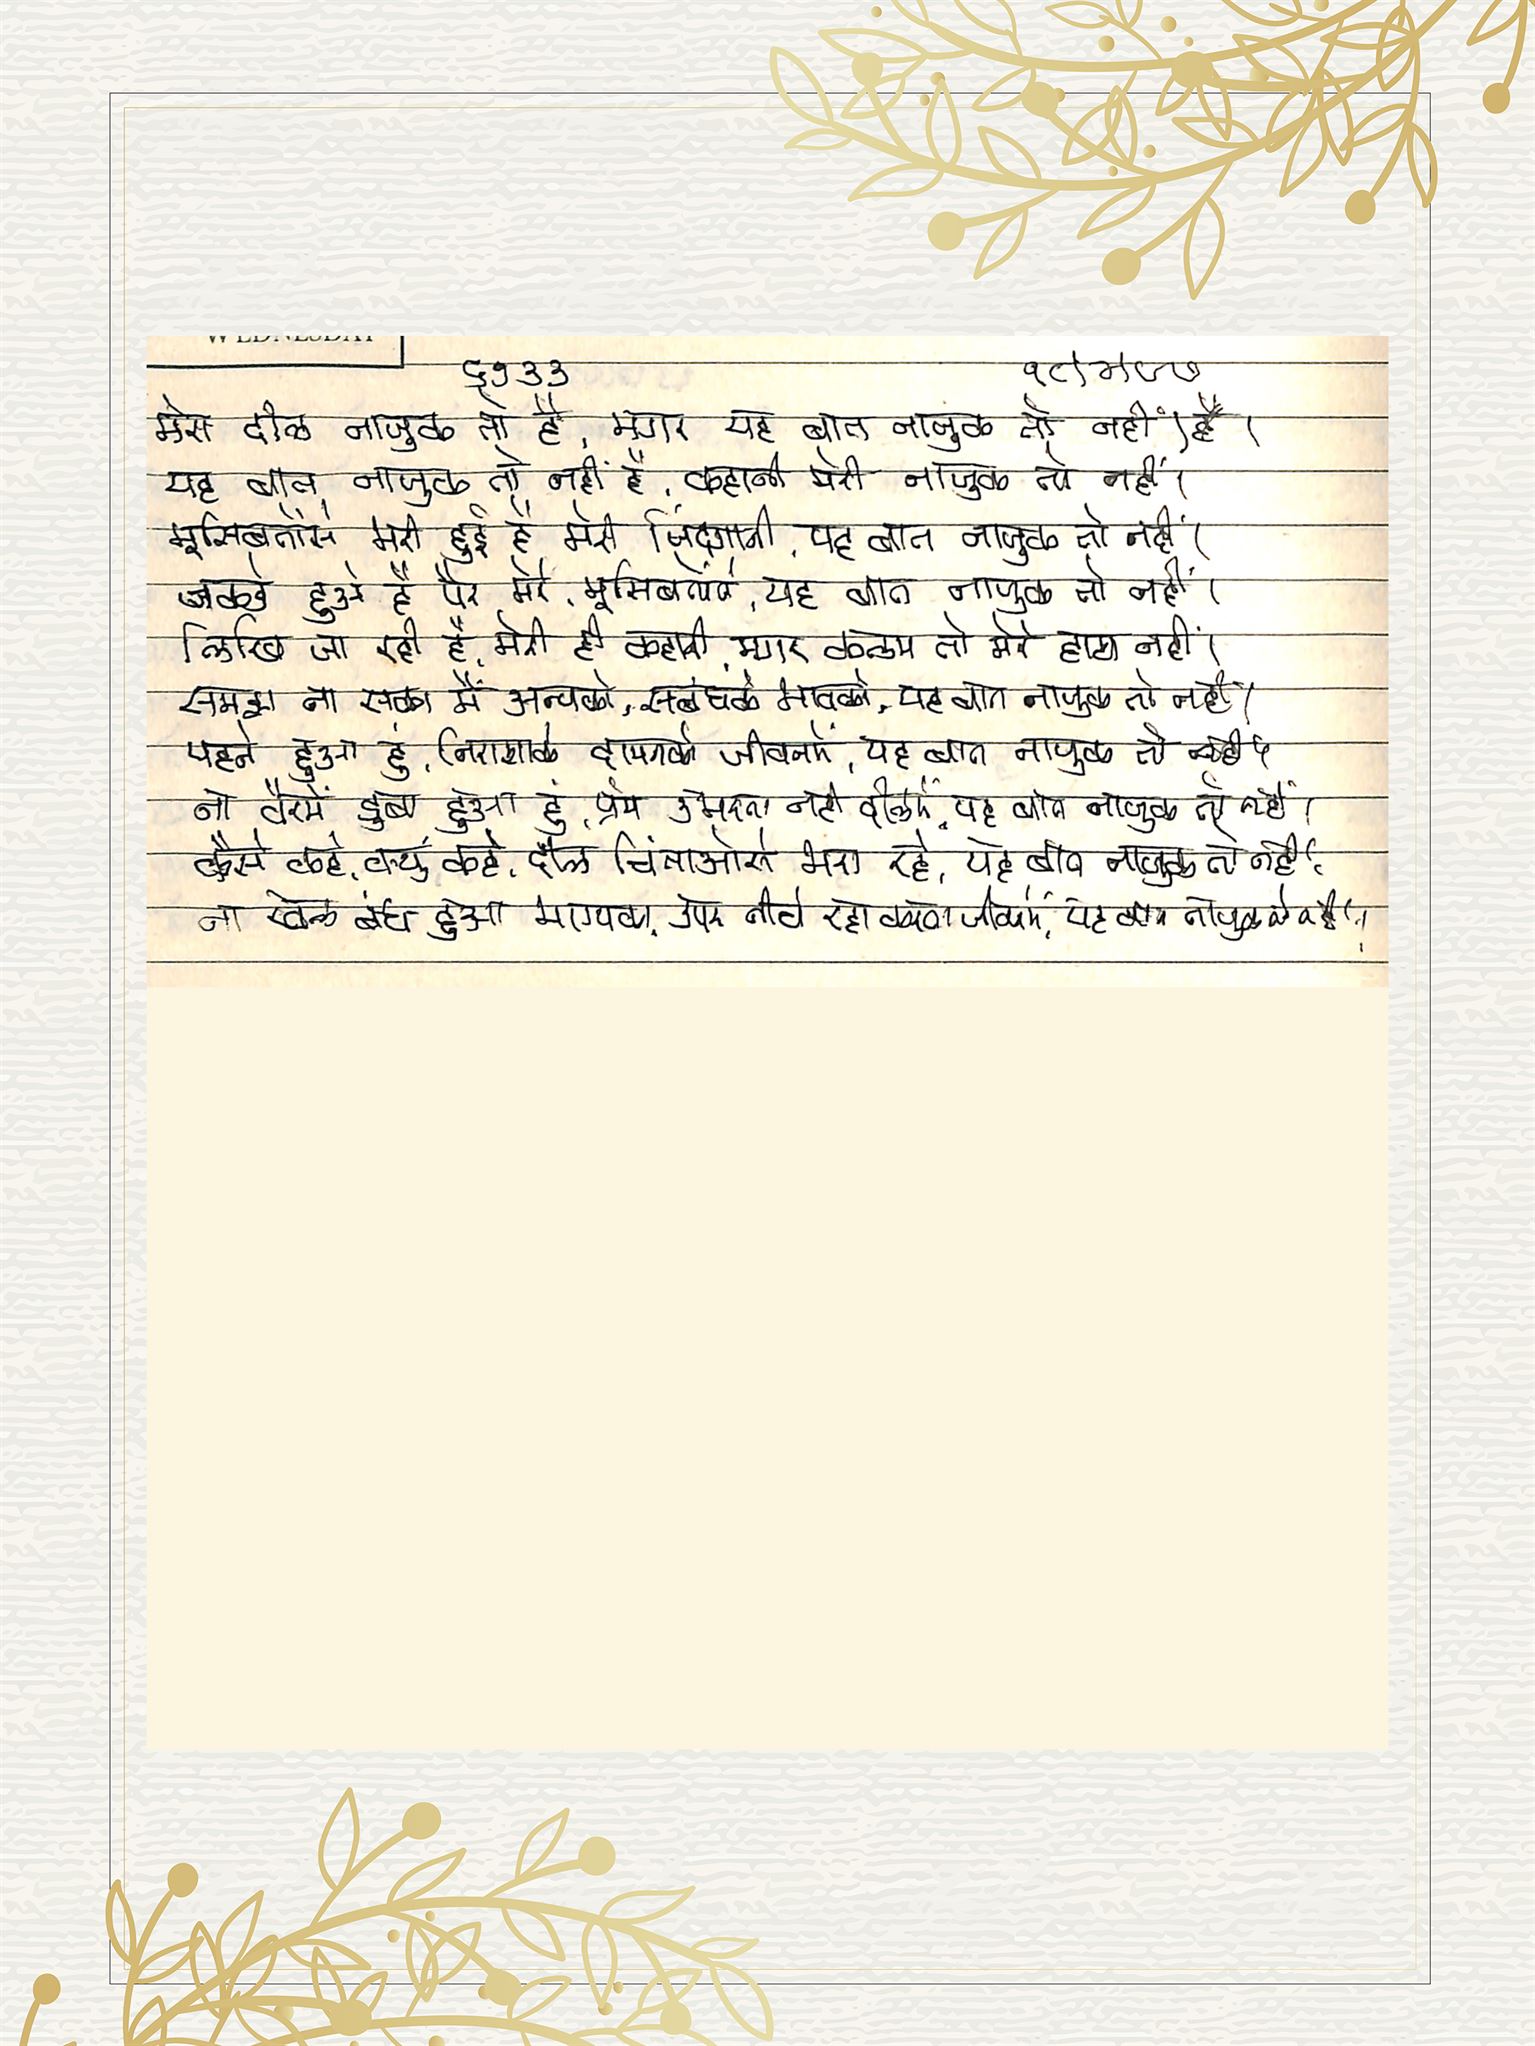 WEDNESDAY
६१३३
मेरा दील नाजुक तो है, मगर यह बात नाजुक तो नहीं है।
यह बात नाजुक तो नहीं है, कहानी मेरी नाजुक तो नहीं।
मूसिबतोंसे भरी हुई है मेरी जिंदगानी, यह बात नाजुक तो नहीं।
जकडे हुओ है पैर मेरे, मूसिबतोंने, यह बात नाजुक तो नहीं।
लिखि जा रही है, मेरी ही कहानी, मगर कलम तो मेरे हाथ नहीं।
समझ ना सका मैं अन्यको, संबंधके भावको, यह बात नाजुक तो नहीं।
पहने हुआ हुं, निराशाके दामनको जीवनमें, यह बात नाजुक तो नहीं।
ना वैरमें डुबा हुआ हुं, प्रेम उभरता नहीं दीलमें, यह बात नाजुक तो नहीं।
कैसे कहे, क्युं कहे, दील चिंताओसे भरा रहे, यह बात नाजुक तो नहीं।
ना खेल बंध हुआ भाग्यका, उपर नीचे रहा करता जीवनमें, यह बात नाजुक तो नहीं।